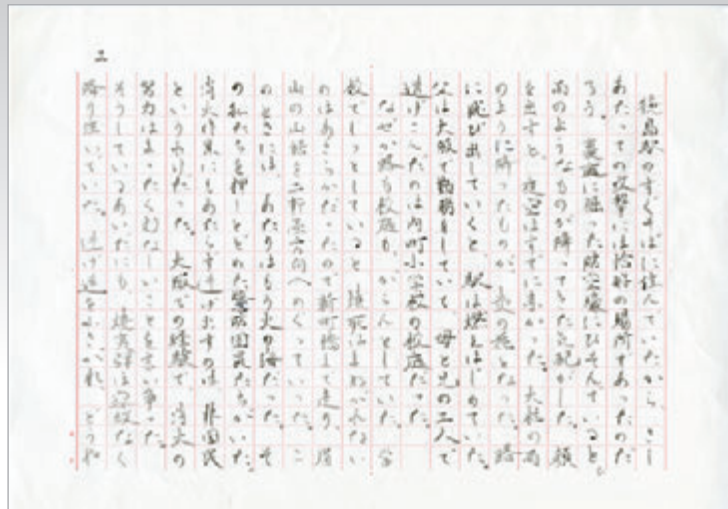 二
徳島駅のすぐそばに住んでいたから、さし
あたっての攻撃には恰好の場所であったのだ
ろう。裏庭に掘った防空壕にひそんでいると
雨のようなものが降ってきた気配がした。顔
を出すと、夜空はすでに赤かった。大粒の雨
のように降ったものが、炎の花となった。路
に飛び出していくと、駅は燃えはじめていた。
父は大阪で勤務をしていて、母と兄の三人で
逃げこんだのは内町小学校の校庭だった。
なぜか路も校庭も、がらんとしていた。学
校でじっとしていると焼死はまぬがれない
のはあきらかだったので新町橋まで走り、眉
山の山裾を二軒屋方向へのがっていった。こ
のときには、あたりはもう火の海だった。そ
の私たちを押しとどめた警察団員たちがいた。
消火作業にもあたらず逃げ出すのは、非国民
というわけだった。大阪での経験で、消火の
努力はまったく幻なしいことを言い争った。
そうしているあいだにも、焼夷弾は容赦なく
降り注いでいた。逃げ道をふさがれ、どうに